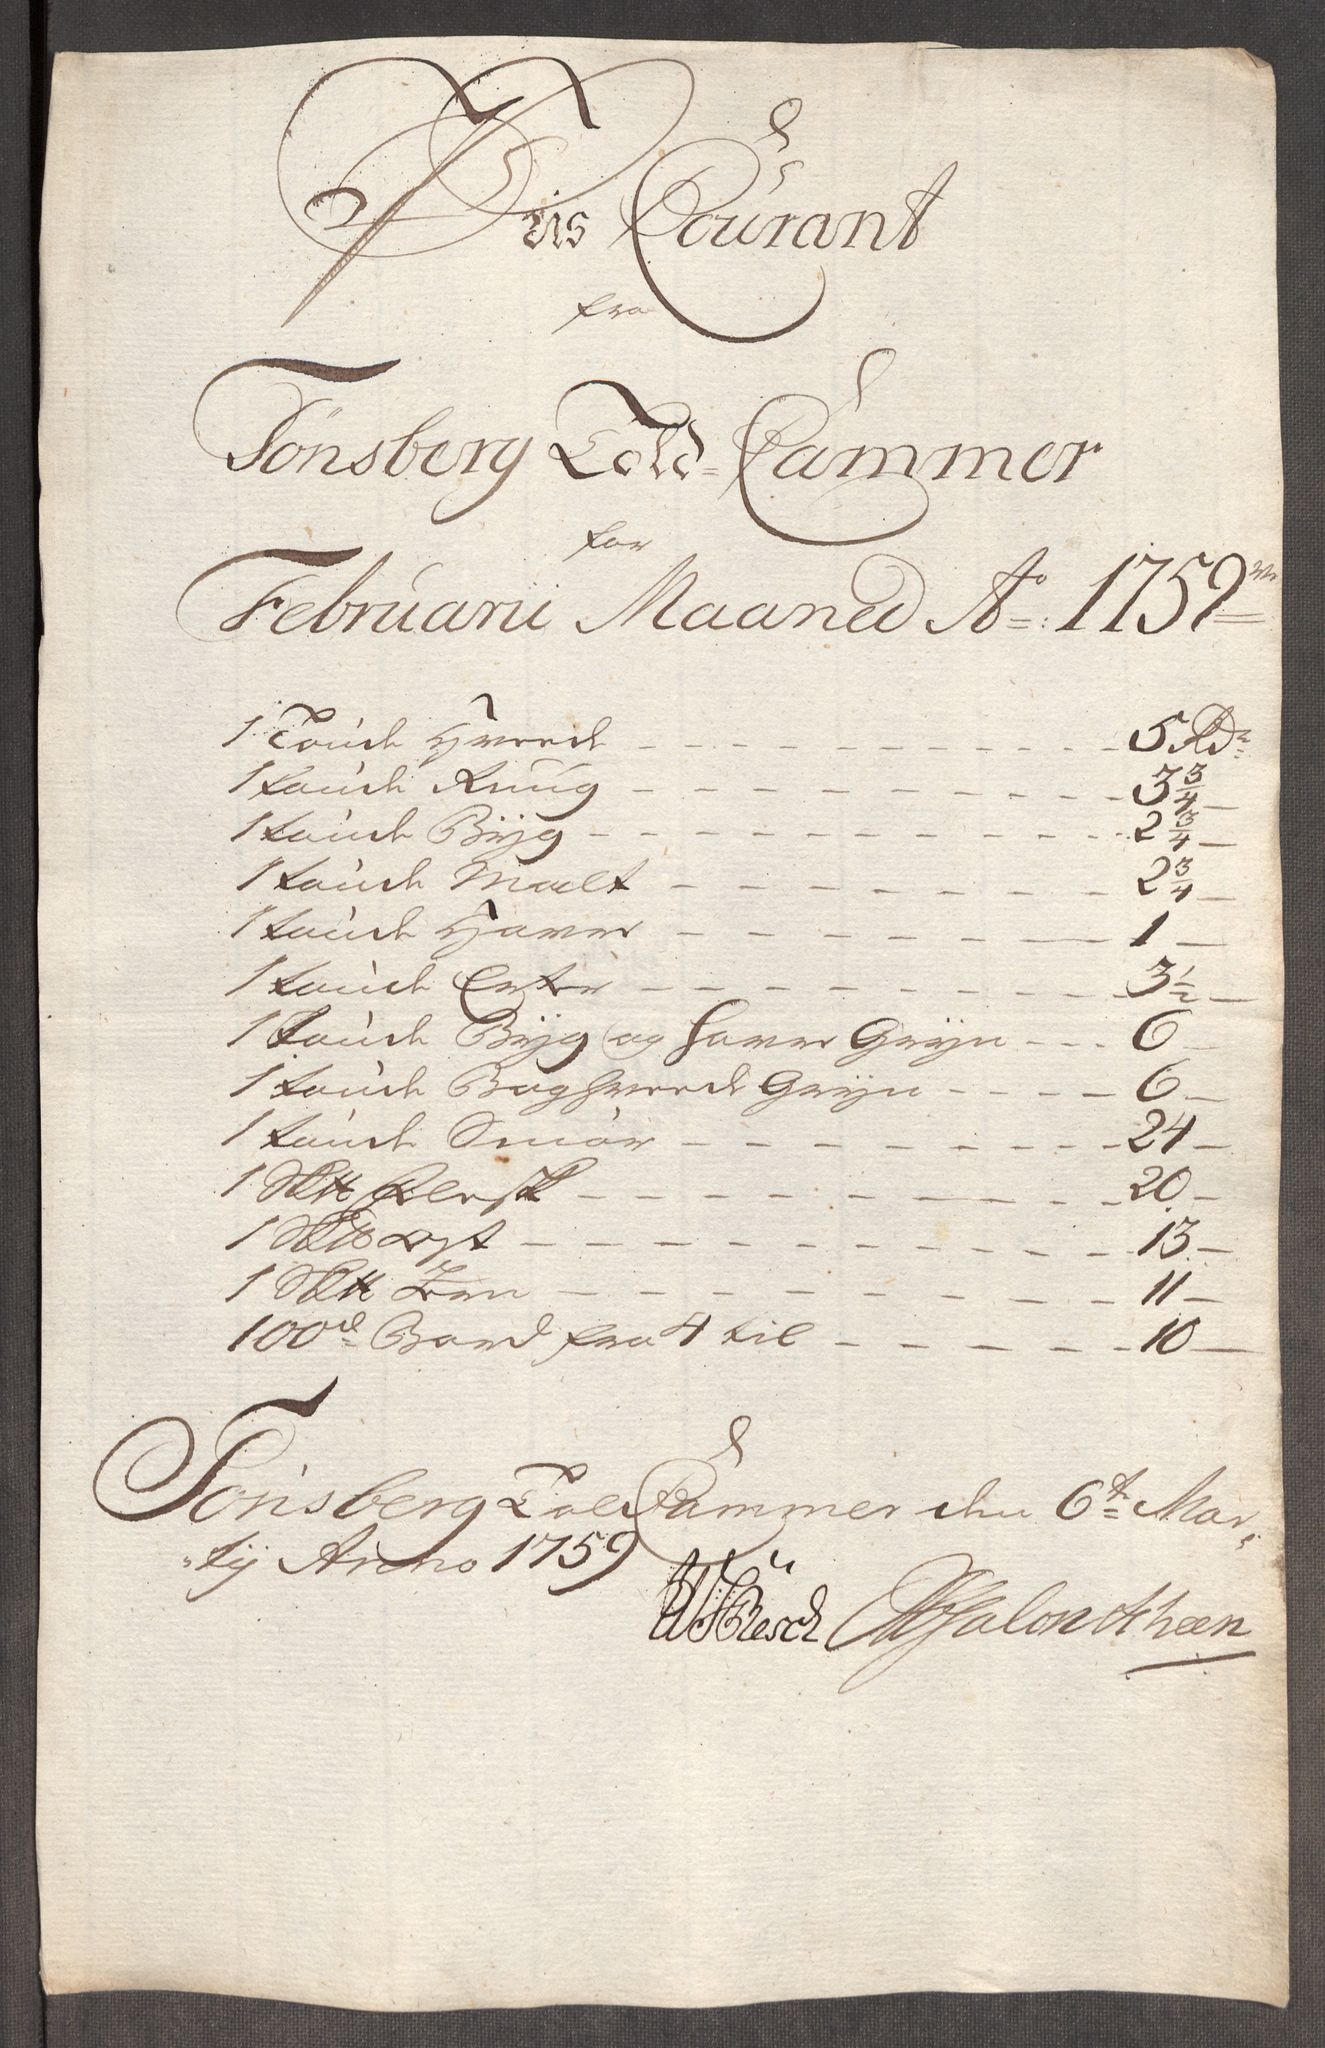 Pris Courant
fra
Tönsberg Told-Cammer
for
Februarii Maaned Ao: 1759
1 Tønde Hveede 5 Rd
1 tønde Rüug 3 3/4
1 tønde Bÿg 2 3/4
1 tønde Malt 2 3/4
1 tønde Haver 1
1 tønde Erter 3 1/2
1 Tønde Bÿg og Haver Grÿn 6
1 tønde Boghveede Grÿn 6
1 tønde Smör 24
1 S℔ Flesk 20
1 S℔ Ost 13
1 S℔ 11
100d Bord fra 4 til 10
Tönsberg Told Cammer den 6t Mar-
tij Anno 1759